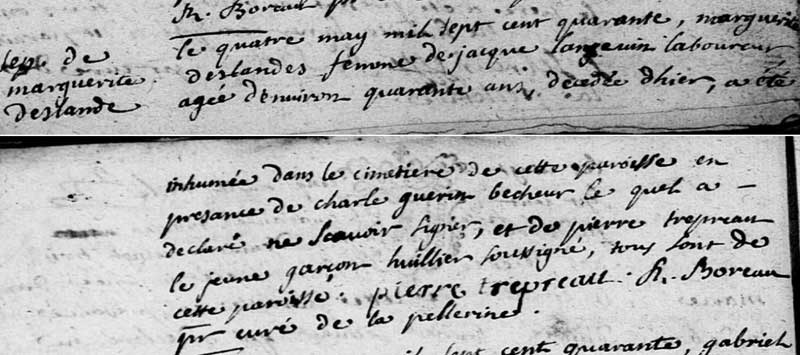 R. Boreau
le quatre may mil sept cent quarante, marguerite
deslandes femme de jacque langevin laboureur
agée d'environ quarante ans, decedée d'hier, a été
sep. de
marguerite
deslande
inhumée dans le cimetiere de cette paroisse en
presance de charle guerin becheur le quel a –
declaré ne scavoir signer, et de pierre trepreau
le jeune garçon huillier soussigné, tous sont de
cette paroisse. pierre trepreau. R. Boreau
ptr curé de la pellerine.
sept cent quarante, gabriel